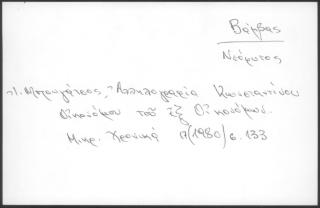 Βάμβας
Νεόφυτος
Ι. Μπουγάτσος, Ἀλληλογραφία Κωνσταντίνου
Οἰκονόμου τοῦ ἐξ Οἰκονόμων.
Μικρ. Χρονικά (1980) σ. 133